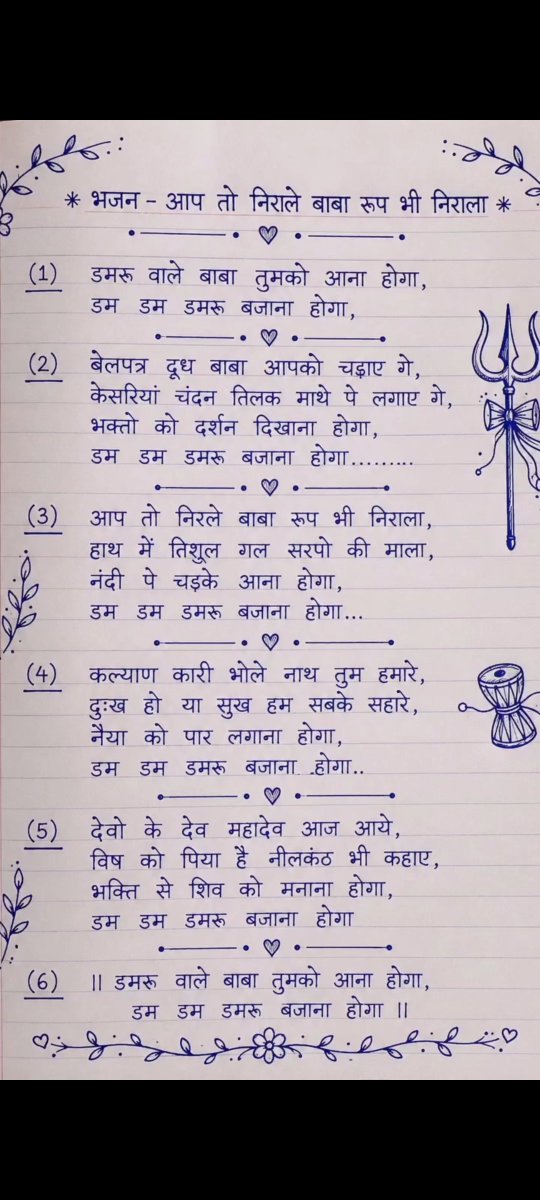 * भजन - आप तो निराले बाबा रूप भी निराला *
(1) डमरू वाले बाबा तुमको आना होगा,
डम डम डमरू बजाना होगा,
(2) बेलपत्र दूध बाबा आपको चड़ाए गे,
केसरियां चंदन तिलक माथे पे लगाए गे,
भक्तो को दर्शन दिखाना होगा,
डम डम डमरू बजाना होगा.........
(3) आप तो निरले बाबा रूप भी निराला,
हाथ में तिशूल गल सरपो की माला,
नंदी पे चड़के आना होगा,
डम डम डमरू बजाना होगा...
(4) कल्याण कारी भोले नाथ तुम हमारे,
दुःख हो या सुख हम सबके सहारे,
नैया को पार लगाना होगा,
डम डम डमरू बजाना होगा..
(5) देवो के देव महादेव आज आये,
विष को पिया है नीलकंठ भी कहाए,
भक्ति से शिव को मनाना होगा,
डम डम डमरू बजाना होगा
(6) ॥ डमरू वाले बाबा तुमको आना होगा,
डम डम डमरू बजाना होगा ॥